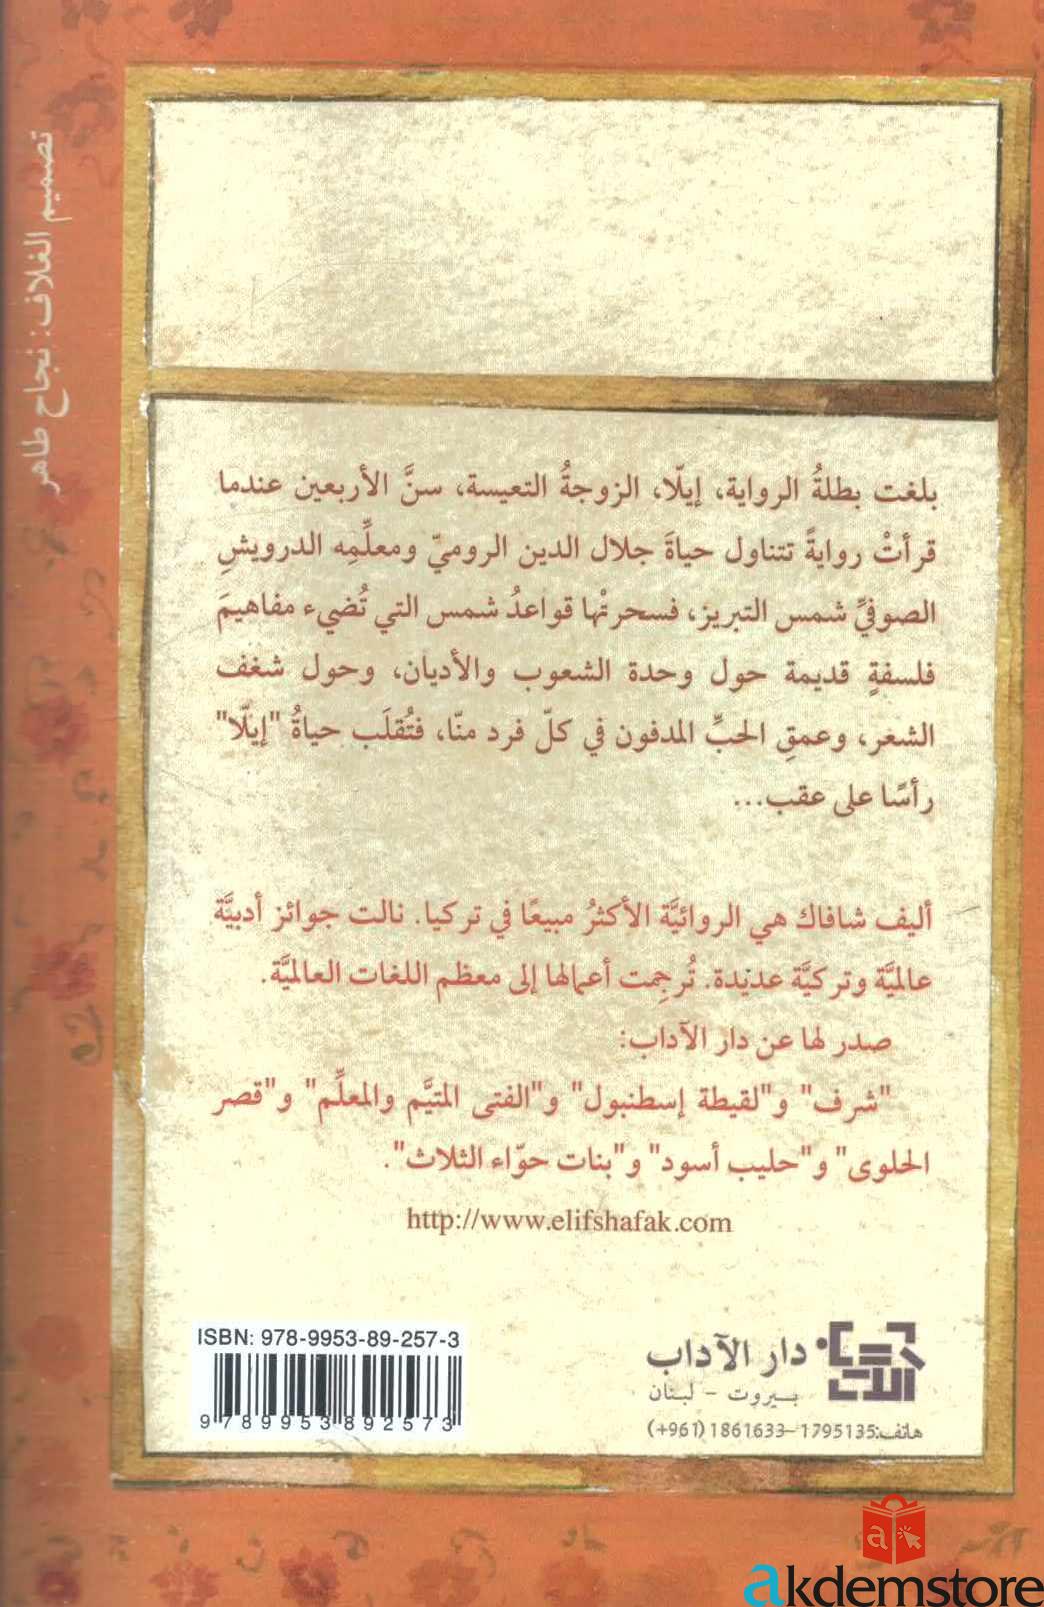 تصميم الغلاف: نجاح طاهر
بلغت بطلةُ الرواية، إيلّا، الزوجةُ التعيسة، سنَّ الأربعين عندما
قرأتْ روايةً تتناول حياةَ جلال الدين الروميّ ومعلِّمِه الدرويشِ
الصوفيِّ شمس التبريز، فسحرتْها قواعدُ شمس التي تُضيء مفاهيمَ
فلسفةٍ قديمة حول وحدة الشعوب والأديان، وحول شغف
الشعر، وعمقِ الحبِّ المدفون في كلّ فرد منّا، فتُقلَب حياةُ "إيلّا"
رأسًا على عقب...
أليف شافاك هي الروائيَّة الأكثرُ مبيعًا في تركيا. نالت جوائز أدبيَّة
عالميَّة وتركيَّة عديدة. تُرجِمت أعمالها إلى معظم اللغات العالميَّة.
صدر لها عن دار الآداب:
"شرف" و"لقيطة إسطنبول" و"الفتى المتيَّم والمعلِّم" و"قصر
الحلوى" و"حليب أسود" و"بنات حوّاء الثلاث".
http://www.elifshafak.com
ISBN: 978-9953-89-257-3
9 789953 892573
دار الآداب
بيروت - لبنان
هاتف: 1795135-1861633 (961+)
a
akdemstore